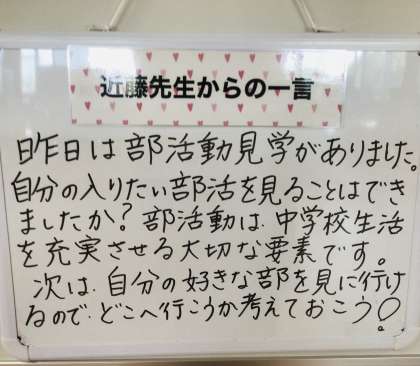 近藤先生からの一言
昨日は部活動見学がありました。
自分の入りたい部活を見ることはでき
ましたか？部活動は、中学校生活
を充実させる大切な要素です。
次は、自分の好きな部を見に行け
るので、どこへ行こうか考えておこう！